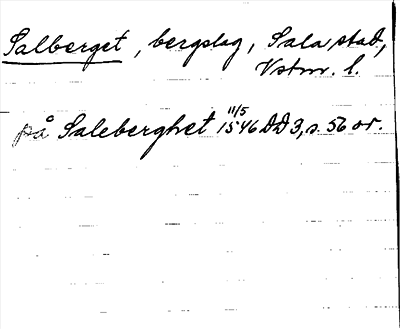 Salberget, bergslag, Sala stad,
Vstm. l.
på Saleberghet 11/5 1546 DD 3, s. 56 or.